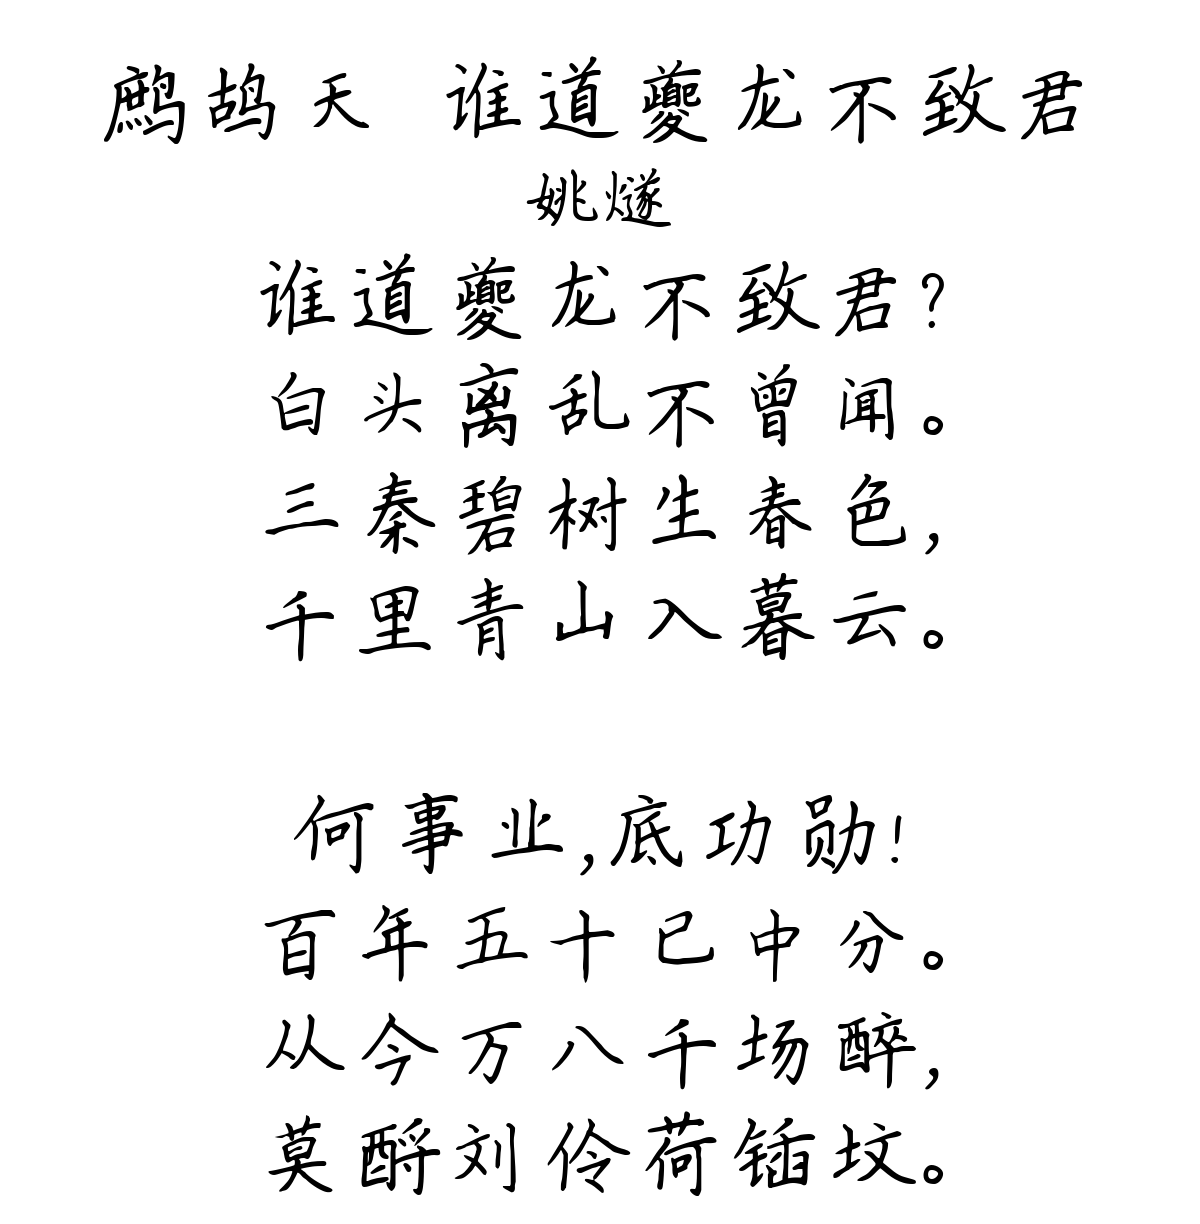 鹧鸪天 谁道夔龙不致君
姚燧
谁道夔龙不致君？
白头离乱不曾闻。
三秦碧树生春色，
千里青山入暮云。
何事业，底功勋！
百年五十已中分。
从今万八千场醉，
莫酹刘伶荷锸坟。